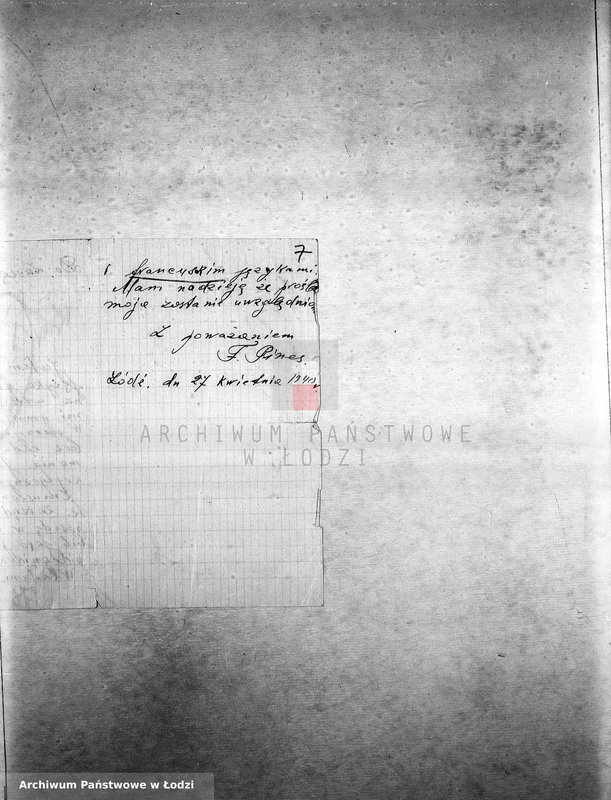 7
i francuskim językami.
Mam nadzieję że prośba
moja zostanie uwzględnio
Z poważaniem
F. Pines.
Łódź, dn 27 kwietnia
ARCHIWUM PAŃSTWOWE
W ŁODZI
Archiwum Państwowe w Łodzi